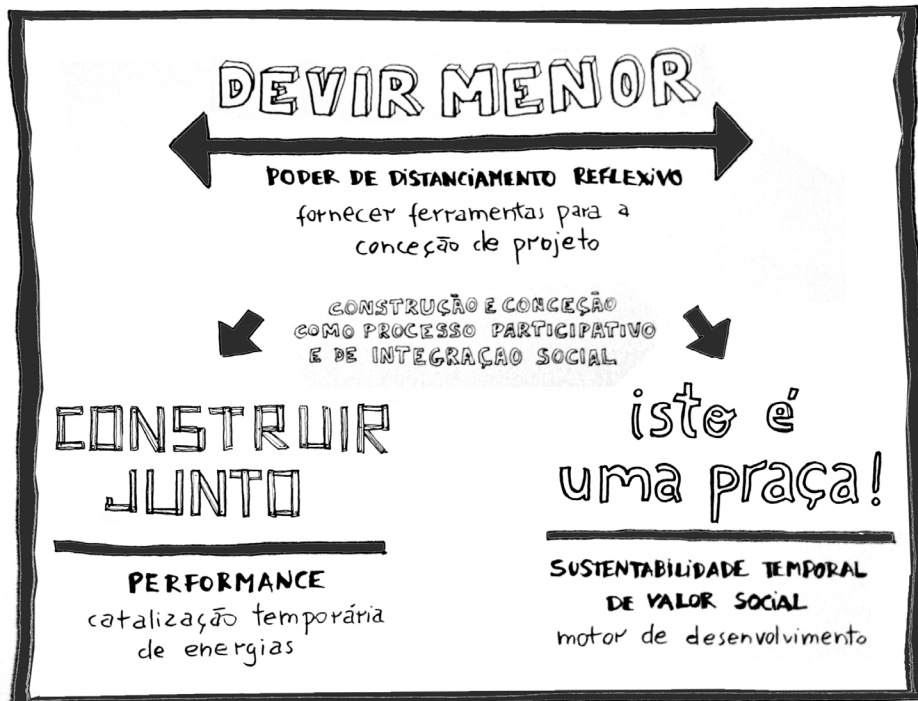 DEVIR MENOR
PODER DE DISTANCIAMENTO REFLEXIVO
fornecer ferramentas para a
conceção de projeto
CONSTRUÇÃO E CONCEÇÃO
COMO PROCESSO PARTICIPATIVO
E DE INTEGRAÇAO SOCIAL
CONSTRUIR
JUNTO
PERFORMANCE
catalização temporária
de energias
isto é
uma praça!
SUSTENTABILIDADE TEMPORAL
DE VALOR SOCIAL
motor de desenvolvimento